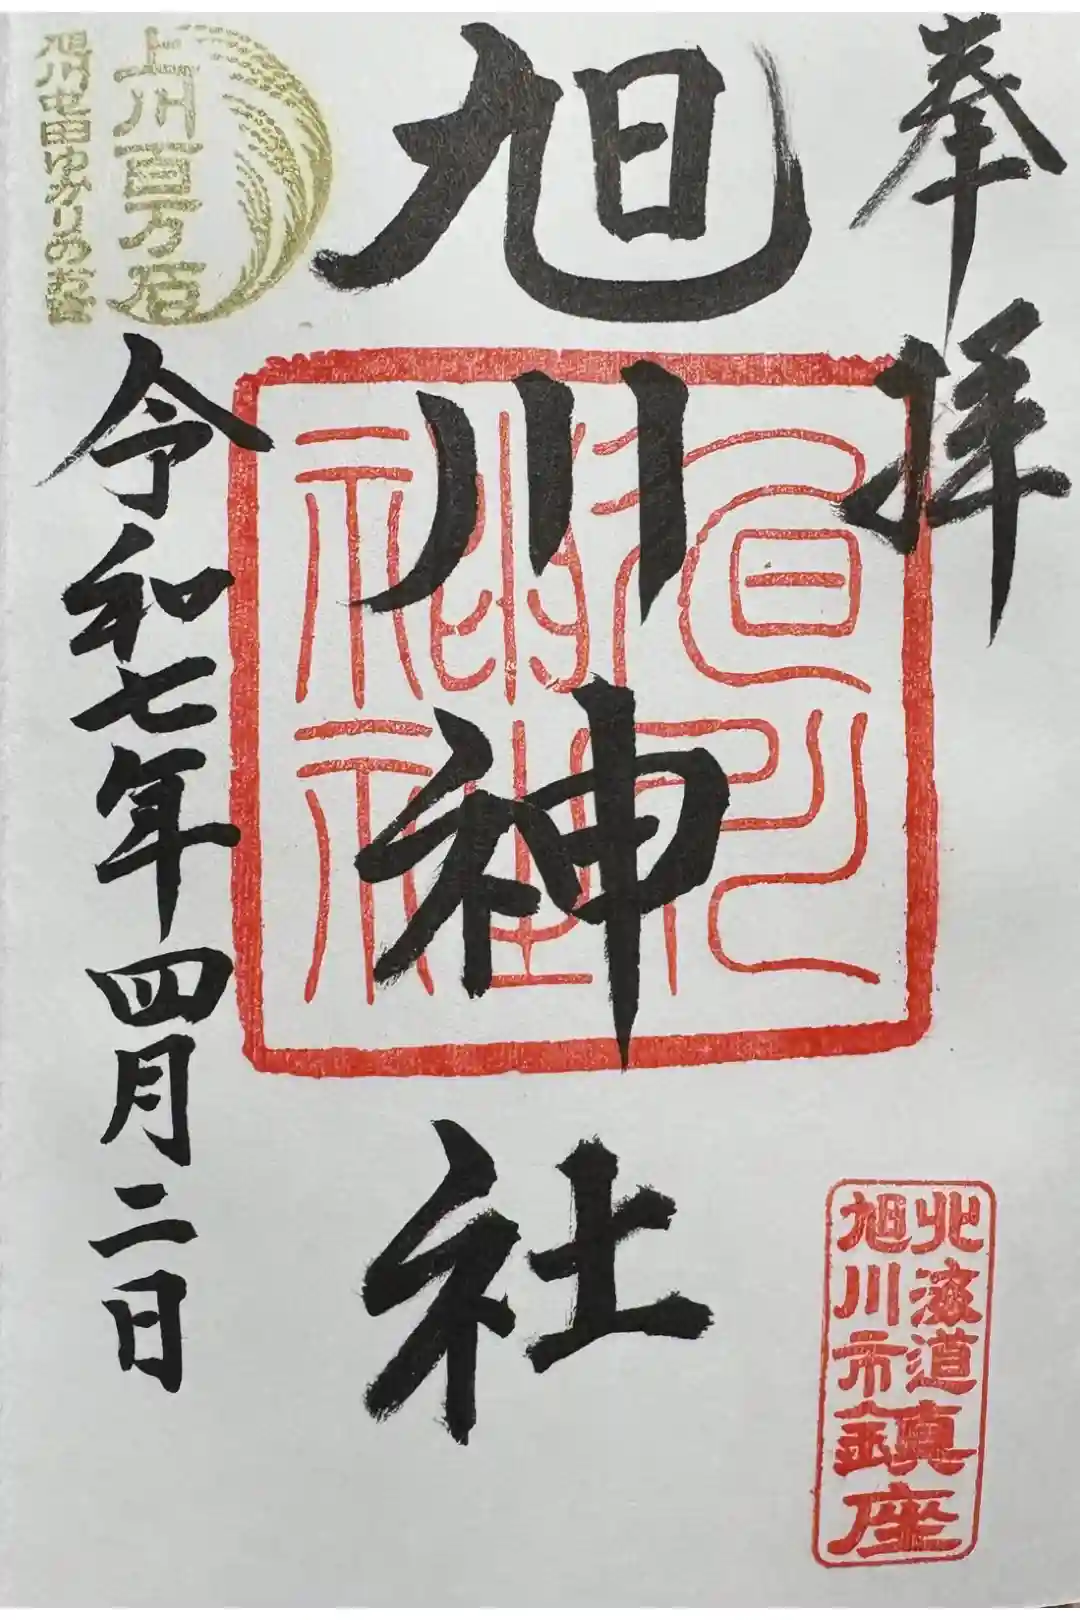 奉拝
旭川神社
旭川神社
北海道
旭川市
鎮座
上川百万石
旭川屯田ゆかりの古社
令和七年四月二日